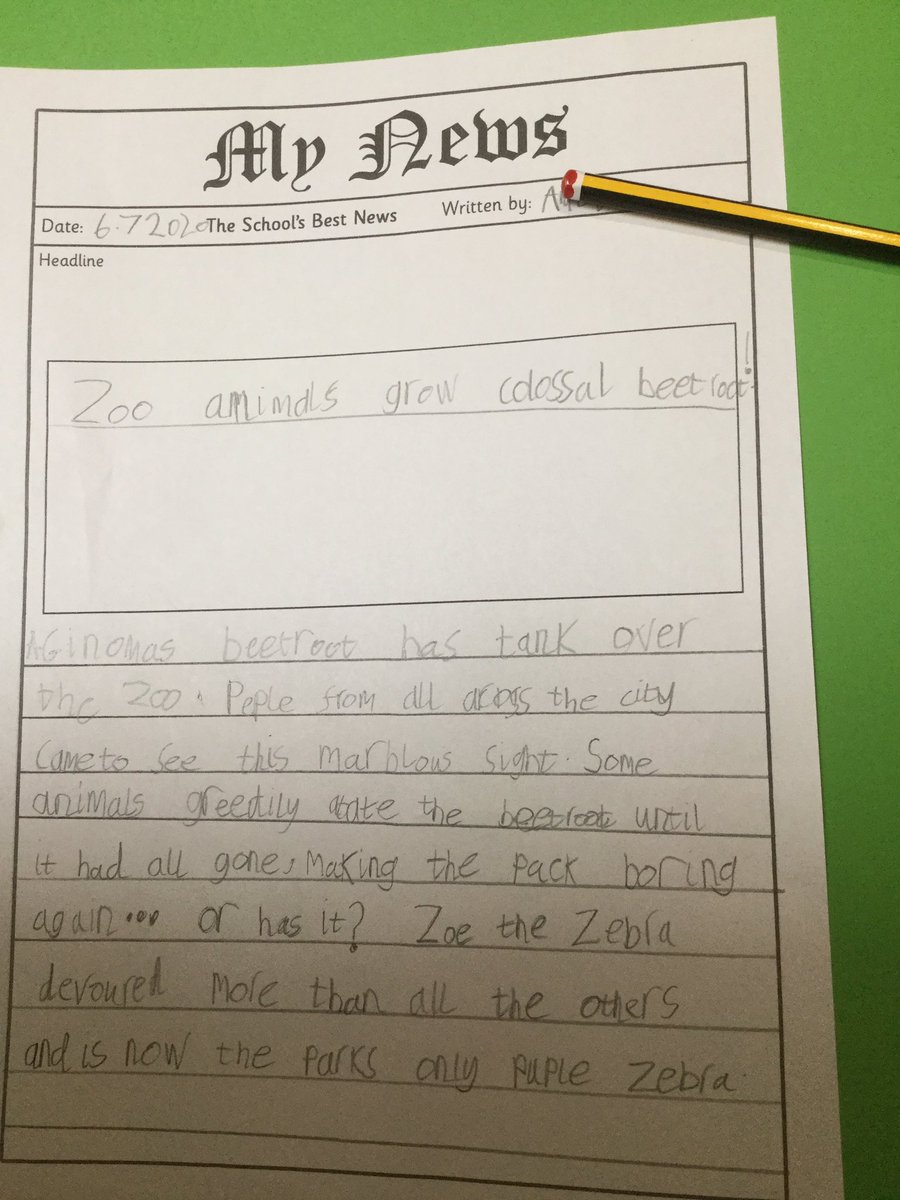 My News
Date: 6.7 2020 The School's Best News Written by:
Headline
Zoo animals grow colossal beetroot!
AGinomas beetroot has tank over
the zoo. Peple from all across the city
came to see this marblous sight. Some
animals greedily ate the beetroot until
it had all gone, making the pack boring
again... or has it? Zoe the Zebra
devoured more than all the others
and is now the parks only puple zebra.